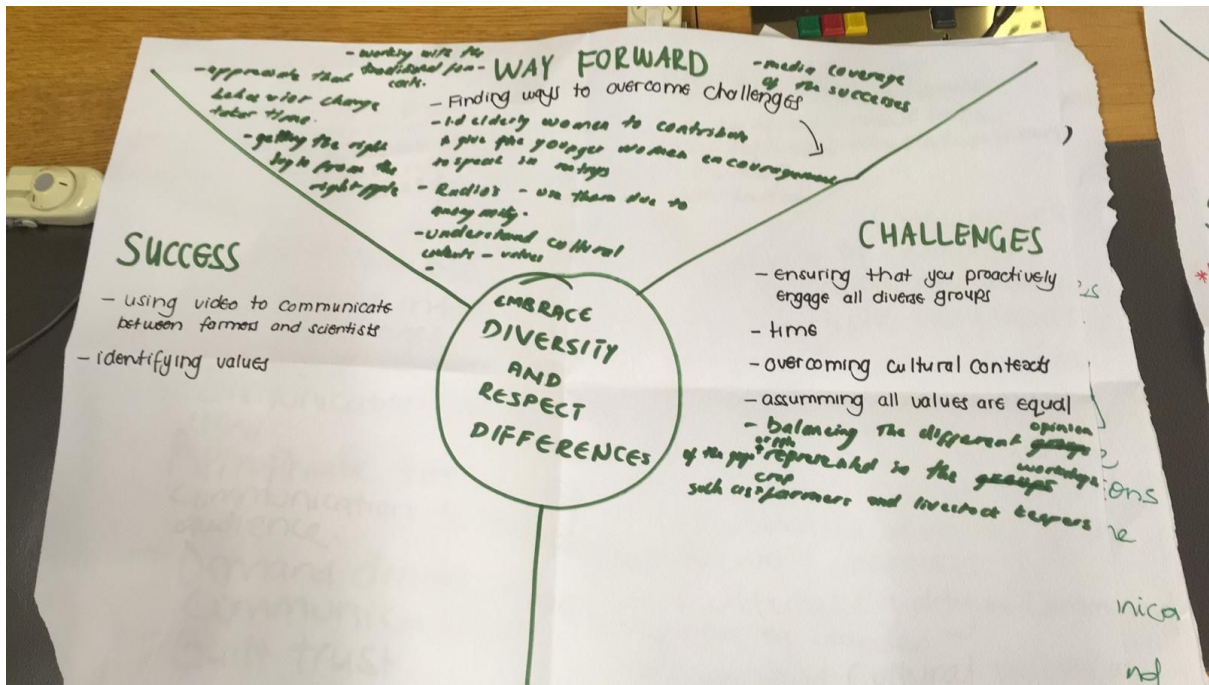 WAY FORWARD
- working with the
traditional
- appreciate that
behavior change
takes time.
- getting the right
from the
right pple
- media coverage
of the successes
- Finding ways to overcome challenges
- elderly women to contribute
& give the younger women encouragement
to speak in
- Radio's - use them due to
- understand cultural
- values
SUCCESS
- using video to communicate
between farmers and scientists
- identifying values
EMBRACE
DIVERSITY
AND
RESPECT
DIFFERENCES
CHALLENGES
- ensuring that you proactively
engage all diverse groups
- time
- overcoming cultural contexts
- assumming all values are equal
- balancing the different opinion
of the represented in the workshops
such as crop farmers and livestock keepers
ons
nica
nd